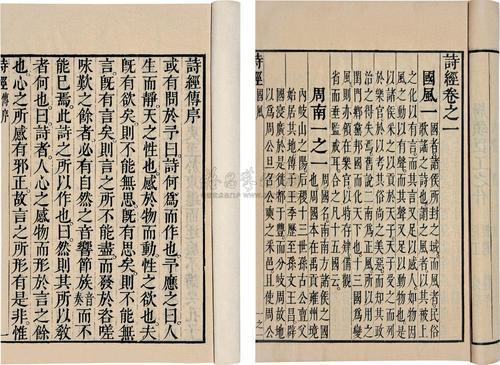 詩經卷之一
國風一
國者諸侯所封之域而風者民俗
歌謠之詩也謂之風者以其被上
之化以有言而其言又足以感人如物因
風之動以有聲而其聲又足以動物也是
以諸侯采之以貢於天子天子受之而列
於樂官於以考其俗尚之美惡而知其政
治之得失焉舊說二南爲正風所以用之
閨門鄉黨邦國而化天下也十三國爲變
風則亦領在樂官以時存肄備觀
省而垂監戒耳合之凡十五國云
周南一之一
周國名南南方諸侯之國
也周國本在禹貢雍州境
內岐山之陽后稷十三世孫古公亶父
始居其地傳子王季歷至孫文王昌辟
國寖廣於是徙都于豐而分岐周故地
以爲周公旦召公奭之采邑且使周公
詩經 國風
詩經傳序
或有問於予曰詩何爲而作也予應之曰人
生而靜天之性也感於物而動性之欲也夫
既有欲矣則不能無思既有思矣則不能無
言既有言矣則言之所不能盡而發於咨嗟
咏歎之餘者必有自然之音響節族音奏而不
能已焉此詩之所以作也曰然則其所以教
者何也曰詩者人心之感物而形於言之餘
也心之所感有邪正故言之所形有是非惟
詩經 傳序 一